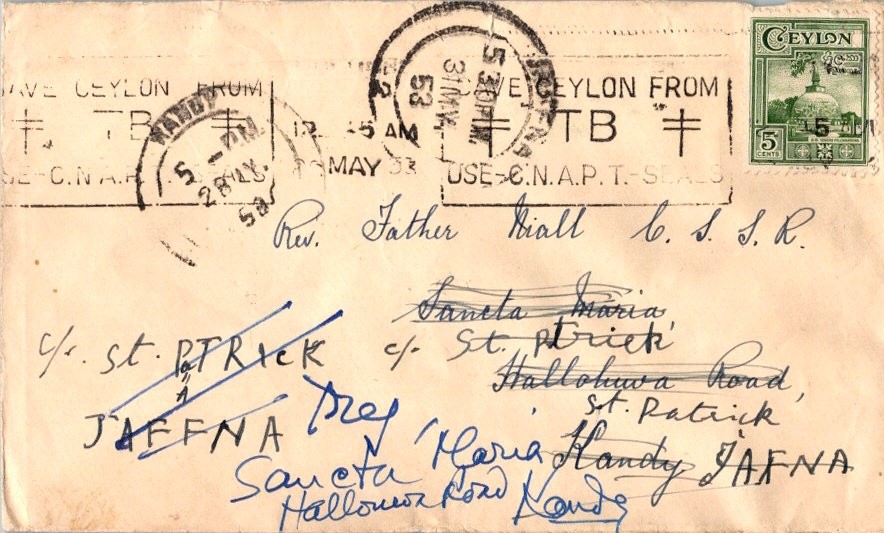 CEYLON
5
CENTS
SAVE CEYLON FROM
TB
USE-C.N.A.P.T.-SEALS
AVE CEYLON FROM
TB
KANDY
5 - PM
28 MY
53
45 AM
MAY 53
JAFFNA
5 30 PM
31 MY
53
Rev. Father Niall C. S. S. R.
Sancta Maria
c/o St. PTrick
Hallohuwa Road,
St. Patrick
Kandy JAFNA
c/o. St. PaTRICK
JAFFNA
Sancta Maria
Kandy